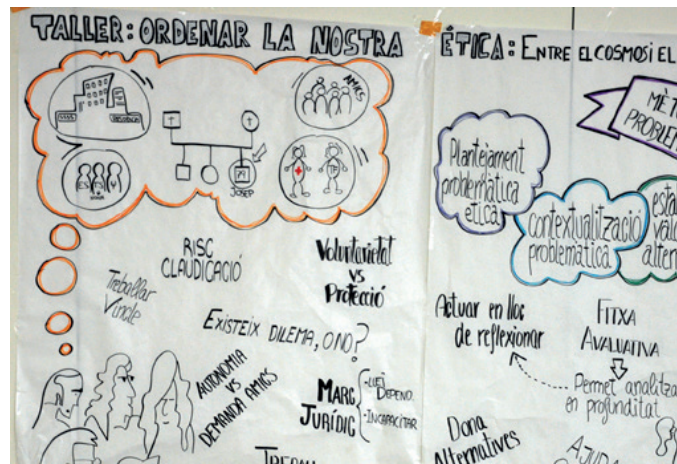 TALLER: ORDENAR LA NOSTRA
AMICS
JOSEP
RISC
CLAUDICACIÓ
Voluntarietat
VS
Protecció
Treballar
Vincle
EXISTEIX DILEMA, O NO?
AUTONOMIA
VS
DEMANDA AMICS
MARC
JURÍDIC
-LLEI DEPEND.
-INCAPACITAR
ÈTICA: ENTRE EL COSMOS I EL
MÈT
PROBLEM
Plantejament
problemàtica
ètica
contextualització
problemàtica
esta
valo
alter
Actuar en lloc
de reflexionar
FITXA
AVALUATIVA
Permet analitza
en profunditat
Dona
Alternatives
AJUDA